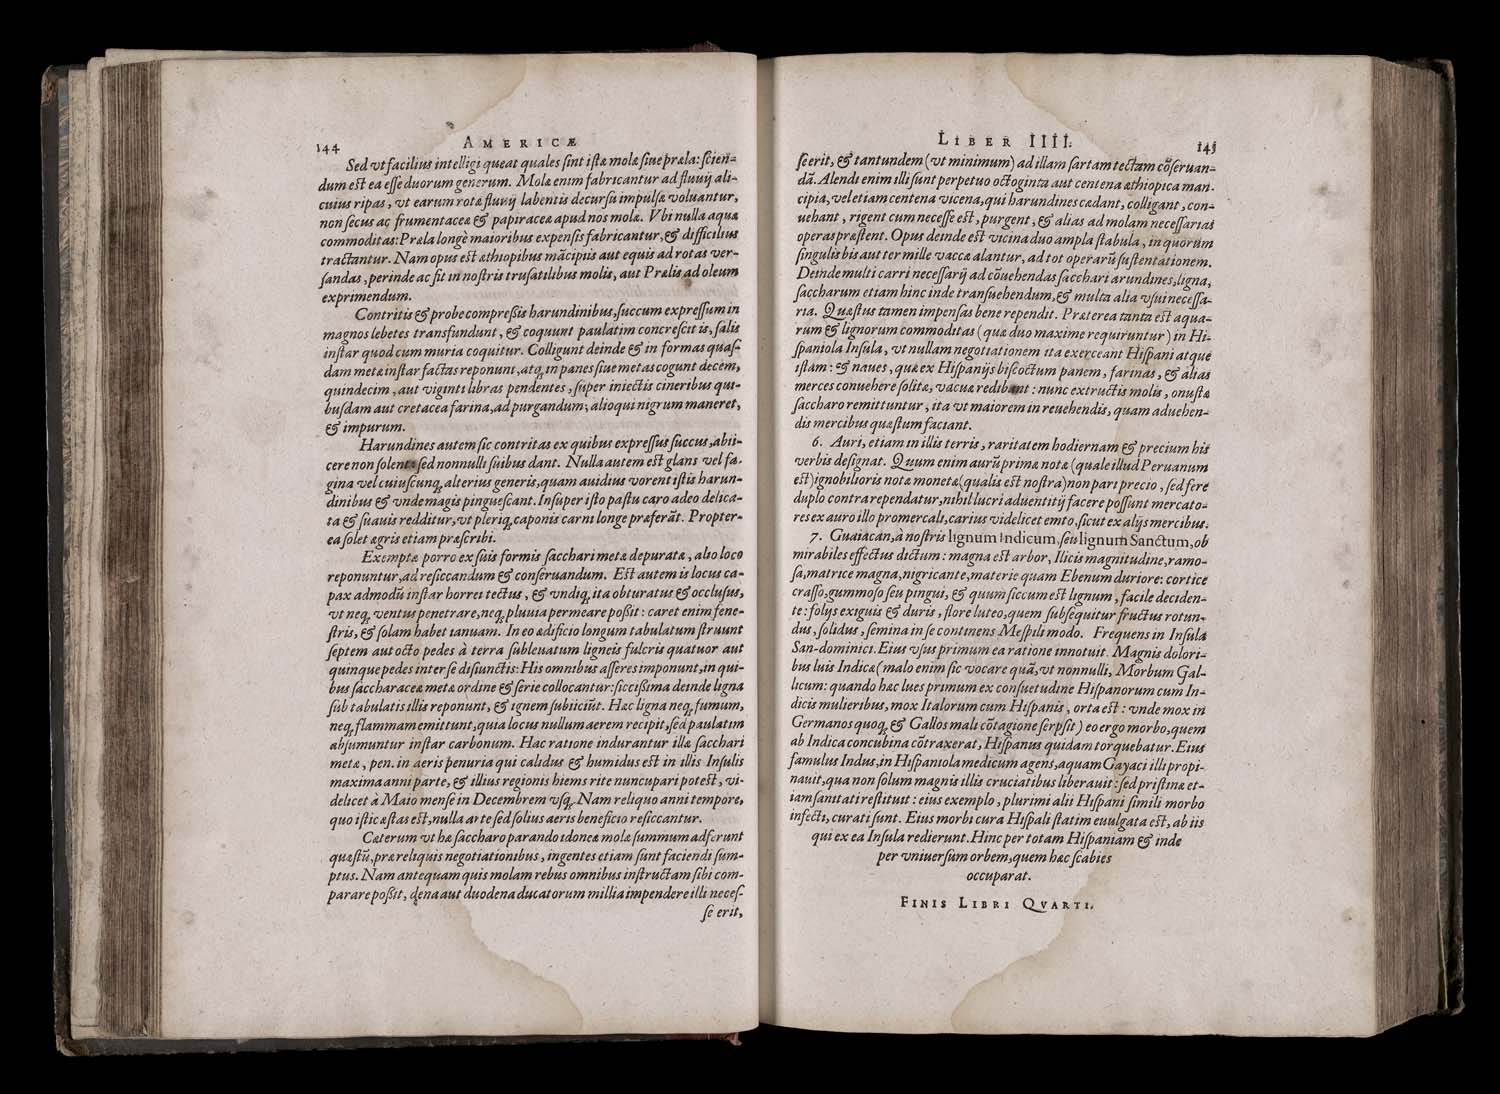 144
AMERICÆ
Sed vt facilius intelligi queat quales sint istæ molæ siue præla: scien-
dum est ea esse duorum generum. Molæ enim fabricantur ad fluuij ali-
cuius ripas, vt earum rotæ fluuij labentis decursu impulsæ voluantur,
non secus ac frumentaceæ & papiraceæ apud nos molæ. Vbi nulla aquæ
commoditas: Præla longè maioribus expensis fabricantur, & difficilius
tractantur. Nam opus est æthiopibus mācipiis aut equis ad rotas ver-
sandas, perinde ac fit in nostris trusatilibus molis, aut Prælis ad oleum
exprimendum.
Contritis & probe compreßis harundinibus, succum expressum in
magnos lebetes transfundunt, & coquunt paulatim concrescit is, salis
instar quod cum muria coquitur. Colligunt deinde & in formas quas-
dam metæ instar factas reponunt, atq, in panes siue metas cogunt decem,
quindecim, aut viginti libras pendentes, super iniectis cineribus qui-
busdam aut cretacea farina, ad purgandum, alioqui nigrum maneret,
& impurum.
Harundines autem sic contritas ex quibus expressus succus, abii-
cere non solent, sed nonnulli suibus dant. Nulla autem est glans vel fa-
gina vel cuiuscunq, alterius generis, quam auidius vorent istis harun-
dinibus & vnde magis pinguescant. Insuper isto pastu caro adeo delica-
ta & suauis redditur, vt pleriq, caponis carni longe præferāt. Propter-
ea solet ægris etiam præscribi.
Exemptæ porro ex suis formis sacchari metæ depuratæ, alio loco
reponuntur, ad resiccandum & conseruandum. Est autem is locus ca-
pax admodū instar horrei tectus, & vndiq, ita obturatus & occlusus,
vt neq, ventus penetrare, neq, pluuia permeare poßit: caret enim fene-
stris, & solam habet ianuam. In eo ædificio longum tabulatum struunt
septem aut octo pedes à terra subleuatum ligneis fulcris quatuor aut
quinque pedes inter se disiunctis: His omnibus asseres imponunt, in qui-
bus saccharaceæ metæ ordine & serie collocantur: siccißima deinde ligna
sub tabulatis illis reponunt, & ignem subiiciūt. Hæc ligna neq, fumum,
neq, flammam emittunt, quia locus nullum aerem recipit, sed paulatim
absumuntur instar carbonum. Hac ratione indurantur illæ sacchari
metæ, pen. in aeris penuria qui calidus & humidus est in illis Insulis
maxima anni parte, & illius regionis hiems rite nuncupari potest, vi-
delicet à Maio mense in Decembrem vsq,. Nam reliquo anni tempore,
quo istic æstas est, nulla arte sed solius aeris beneficio resiccantur.
Cæterum vt hæ saccharo parando idoneæ molæ summum adferunt
quæstū, præ reliquis negotiationibus, ingentes etiam sunt faciendi sum-
ptus. Nam antequam quis molam rebus omnibus instructam sibi com-
parare poßit, dena aut duodena ducatorum millia impendere illi neces-
se erit,
LIBER IIII.
145
se erit, & tantundem (vt minimum) ad illam sartam tectam cōseruan-
dā. Alendi enim illi sunt perpetuo octoginta aut centena æthiopica man-
cipia, vel etiam centena vicena, qui harundines cædant, colligant, con-
uehant, rigent cum necesse est, purgent, & alias ad molam necessarias
operas præstent. Opus deinde est vicina duo ampla stabula, in quorum
singulis bis aut ter mille vaccæ alantur, ad tot operarū sustentationem.
Deinde multi carri necessarij ad cōuehendas sacchari arundines, ligna,
saccharum etiam hinc inde transuehendum, & multa alia vsui necessa-
ria. Quæstus tamen impensas bene rependit. Præterea tanta est aqua-
rum & lignorum commoditas (quæ duo maxime requiruntur) in Hi-
spaniola Insula, vt nullam negotiationem ita exerceant Hispani atque
istam: & naues, quæ ex Hispanijs biscoctum panem, farinas, & alias
merces conuehere solitæ, vacuæ redibant: nunc extructis molis, onustæ
saccharo remittuntur, ita vt maiorem in reuehendis, quam aduehen-
dis mercibus quæstum faciant.
6. Auri, etiam in illis terris, raritatem hodiernam & precium his
verbis designat. Quum enim aurū primæ notæ (quale illud Peruanum
est) ignobilioris notæ monetæ (qualis est nostra) non pari precio, sed fere
duplo contra rependatur, nihil lucri aduentitij facere possunt mercato-
res ex auro illo promercali, carius videlicet emto, sicut ex alijs mercibus.
7. Guaiacan, à nostris lignum Indicum, seu lignum Sanctum, ob
mirabiles effectus dictum: magna est arbor, Ilicis magnitudine, ramo-
sa, matrice magna, nigricante, materie quam Ebenum duriore: cortice
crasso, gummoso seu pingui, & quum siccum est lignum, facile deciden-
te: folijs exiguis & duris, flore luteo, quem subsequitur fructus rotun-
dus, solidus, semina in se continens Mespili modo. Frequens in Insula
San-dominici. Eius vsus primum ea ratione innotuit. Magnis dolori-
bus luis Indicæ (malo enim sic vocare quā, vt nonnulli, Morbum Gal-
licum: quando hæc lues primum ex consuetudine Hispanorum cum In-
dicis mulieribus, mox Italorum cum Hispanis, orta est: vnde mox in
Germanos quoq, & Gallos mali cōtagione serpsit) eo ergo morbo, quem
ab Indica concubina cōtraxerat, Hispanus quidam torquebatur. Eius
famulus Indus, in Hispaniola medicum agens, aquam Gayaci illi propi-
nauit, qua non solum magnis illis cruciatibus liberauit: sed pristinæ et-
iam sanitati restituit: eius exemplo, plurimi alii Hispani simili morbo
infecti, curati sunt. Eius morbi cura Hispali statim euulgata est, ab iis
qui ex ea Insula redierunt. Hinc per totam Hispaniam & inde
per vniuersum orbem, quem hæc scabies
occuparat.
FINIS LIBRI QVARTI.